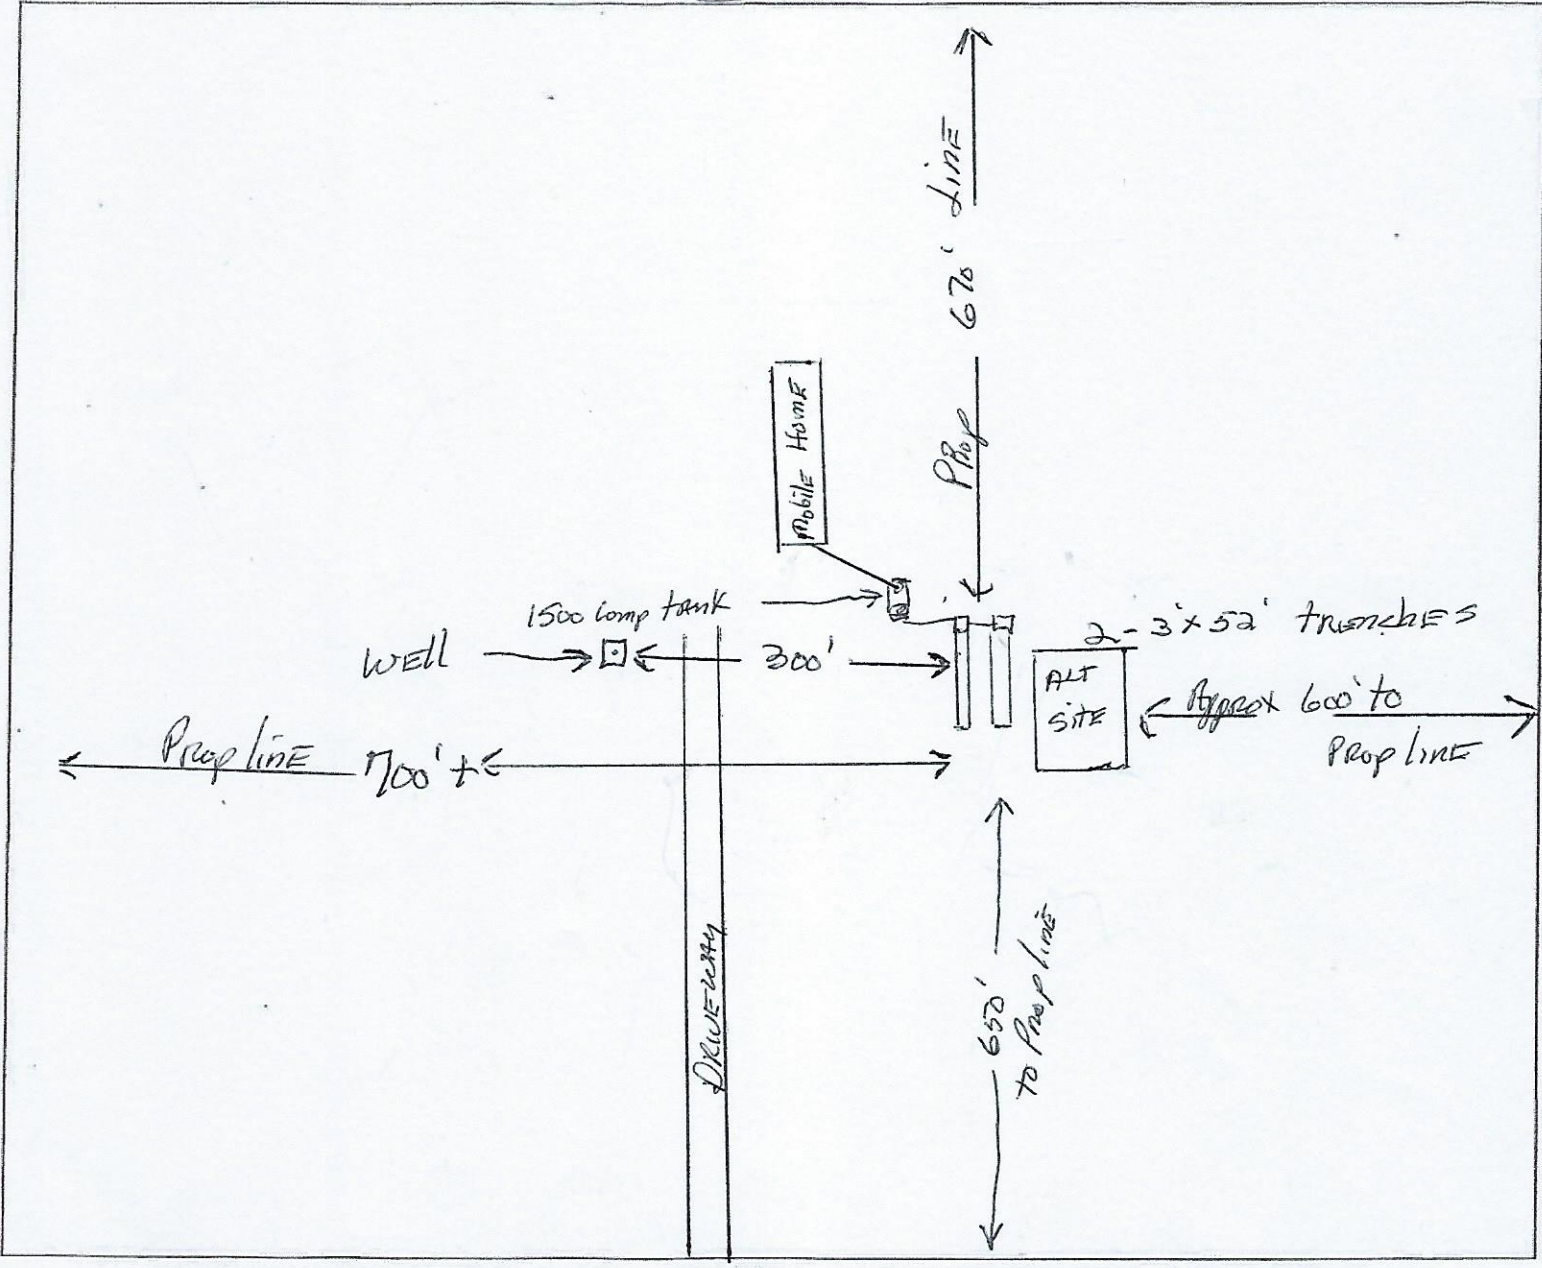 Prop 670' Line
Mobile Home
1500 Comp tank
Well
300'
2-3'x52' trenches
ALT
SitE
Approx 600' to
Prop linE
Prop linE 700'+
DRIVEWAY
650'
to Prop linE